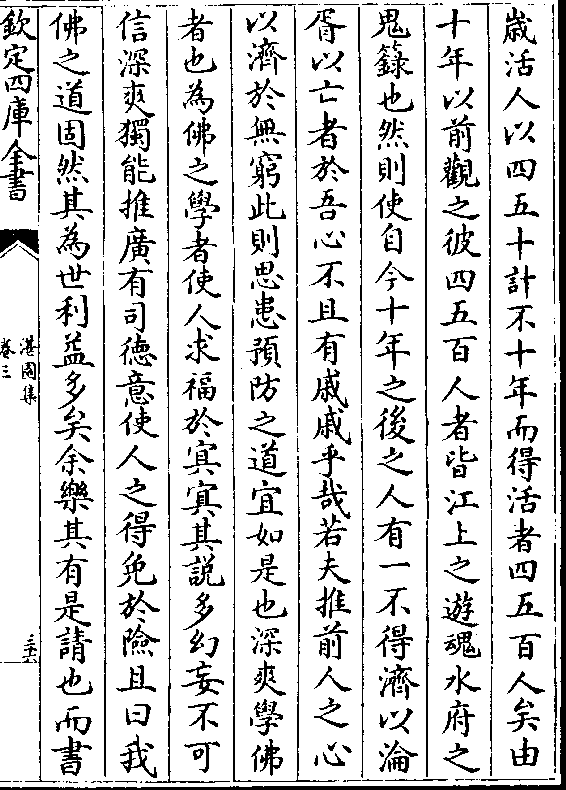 歳活人以四五十計不十年而得活者四五百人矣由
十年以前觀之彼四五百人者皆江上之遊魂水府之
鬼籙也然則使自今十年之後之人有一不得濟以淪
胥以亡者於吾心不且有戚戚乎哉若夫推前人之心
以濟於無窮此則思患預防之道宜如是也深爽學佛
者也為佛之學者使人求福於冥冥其説多幻妄不可
信深爽獨能推廣有司德意使人之得免於險且曰我
佛之道固然其為世利益多矣余樂其有是請也而書
欽定四庫全書
湛園集
卷三
三十六